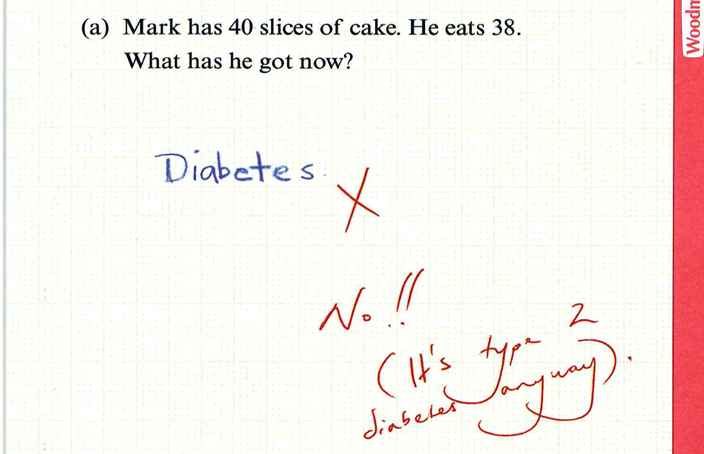 (a) Mark has 40 slices of cake. He eats 38.
What has he got now?
Diabetes.
X
No!!
(It's type 2
diabetes anyway).